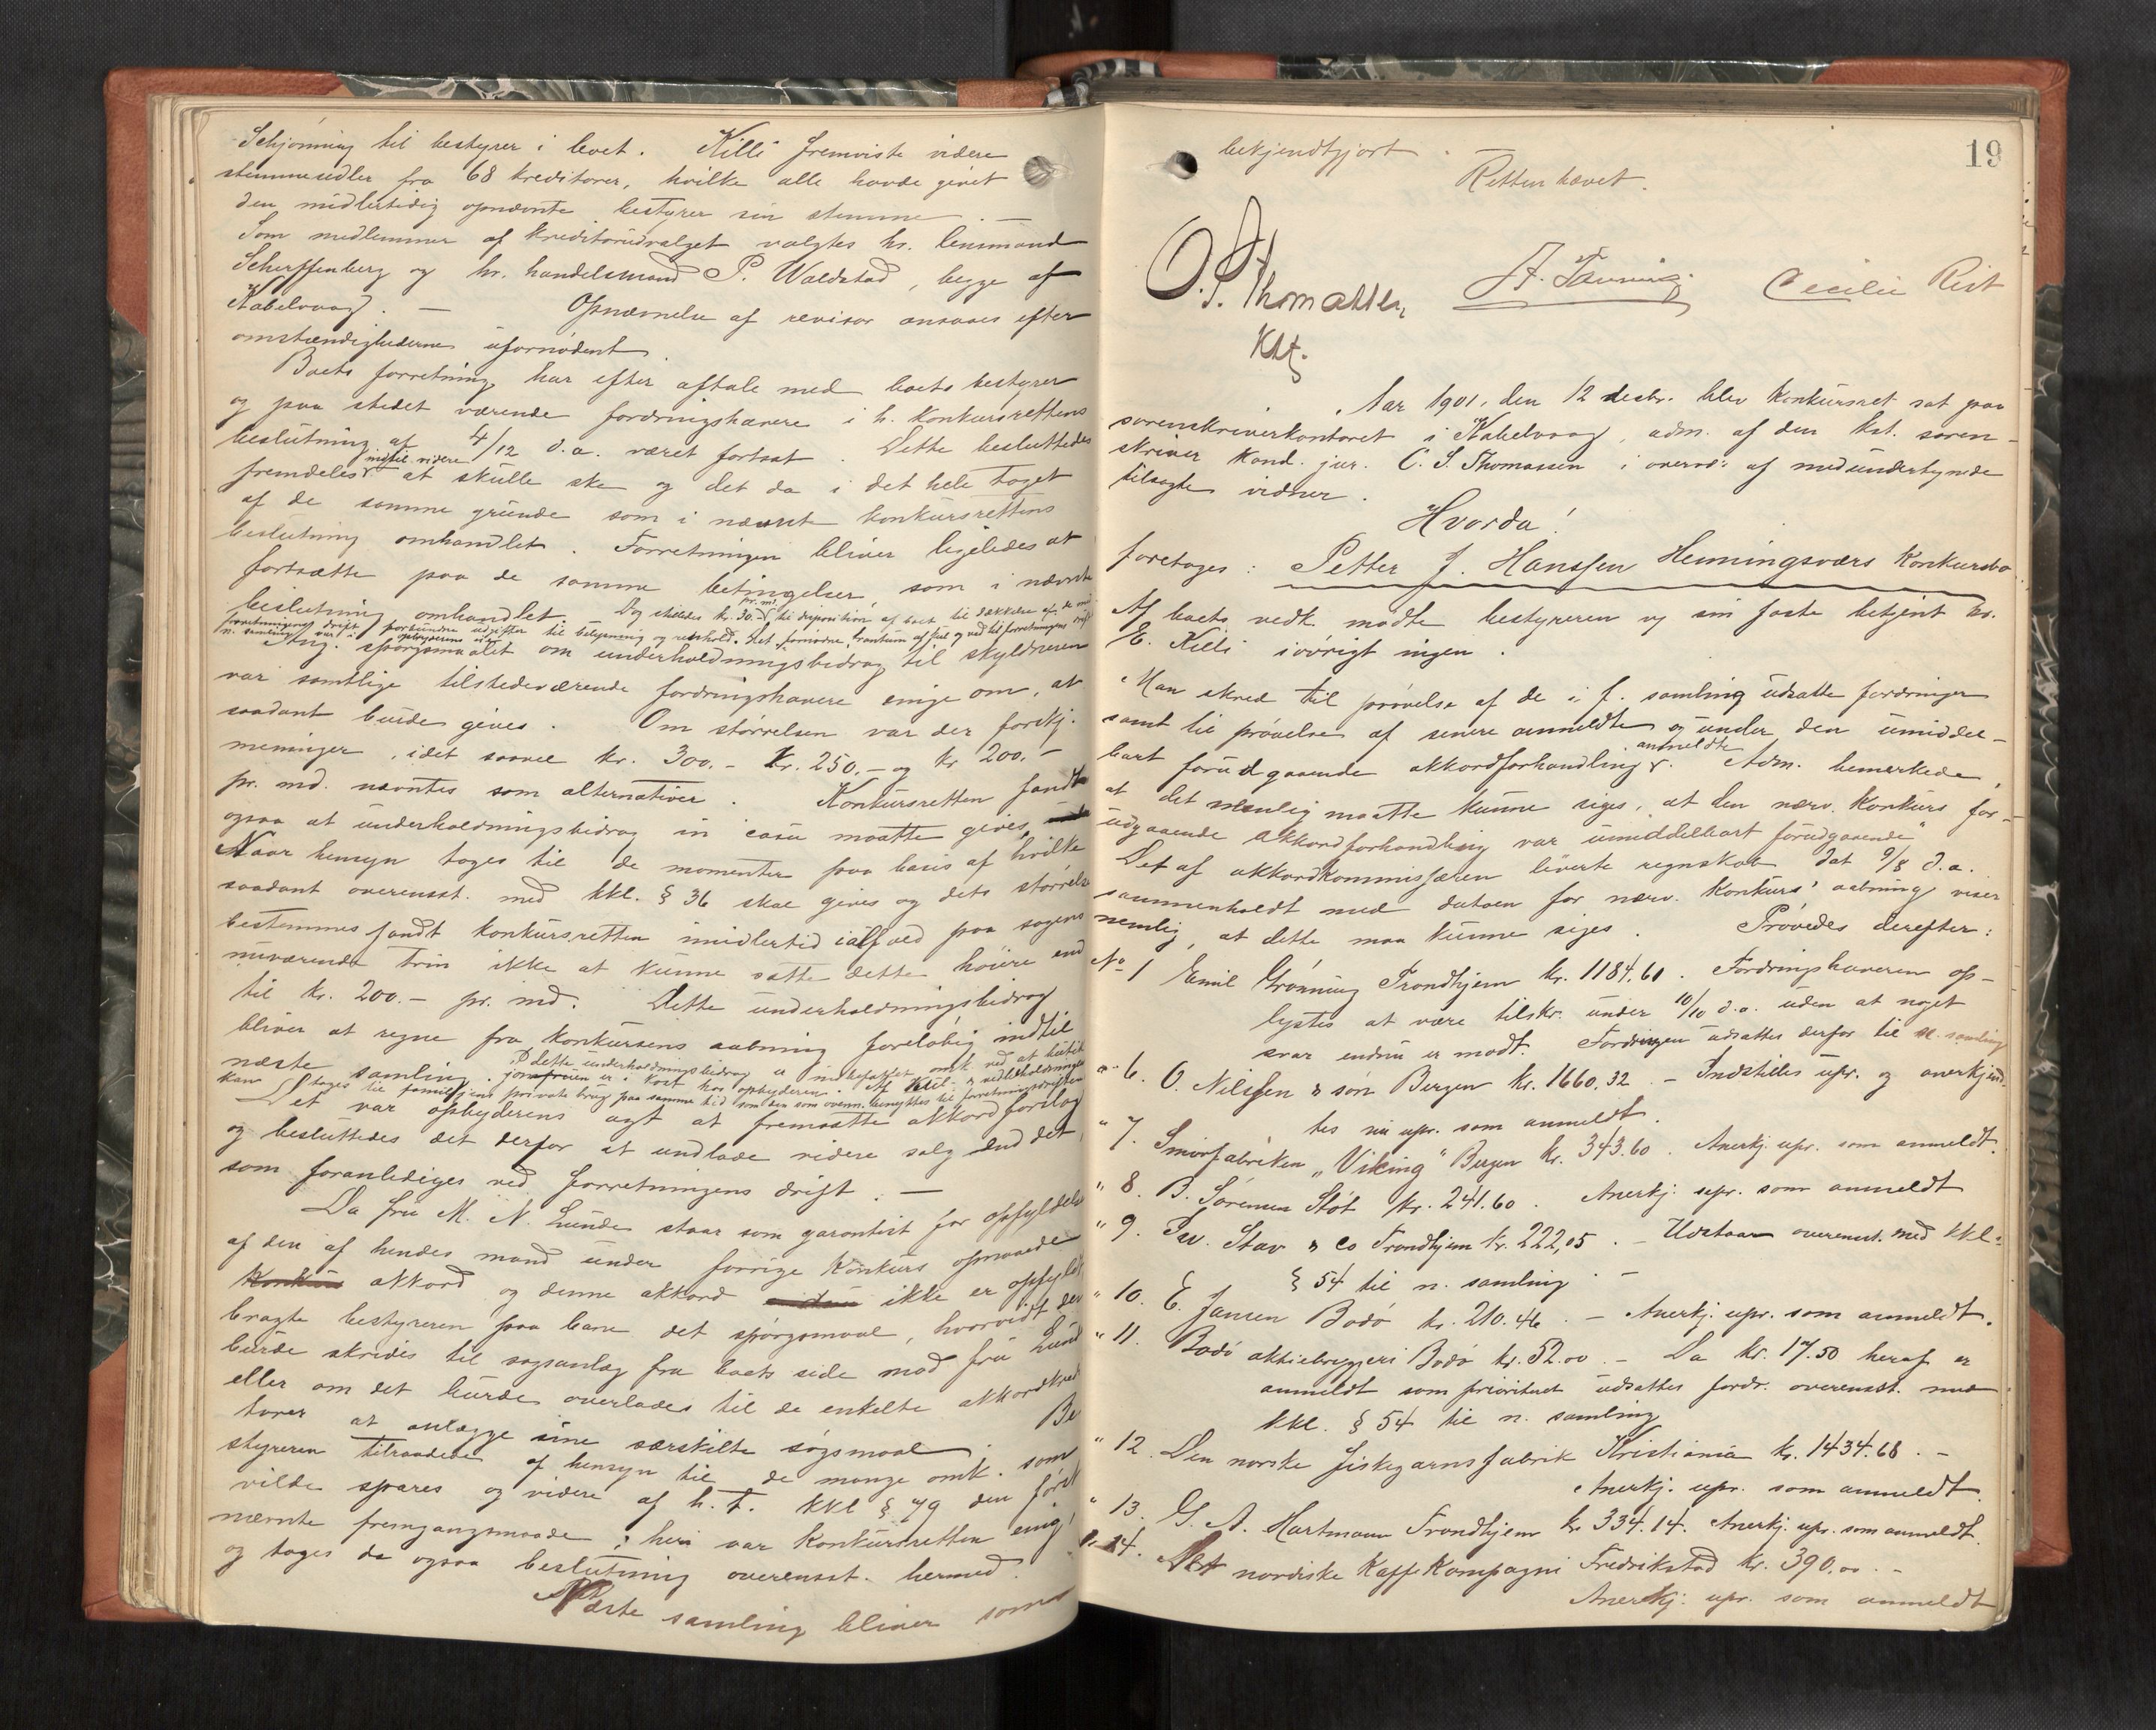 Schjönning til bestyrer i boet. Killi fremviste videre
stemmesedler fra 68 kreditorer, hvilke alle havde givet
den midlertidig opnævnte bestyrer sin stemme. —
Som medlemmer af kreditorudvalget valgtes hr. lensmand
Scherffenberg og hr. handelsmand P. Waldstad, begge af
Kabelvaag. — Opnævnelse af revisor ansaaes efter
omstændighederne ufornödent.
Boets forretning har efter aftale med boets bestyrer
og paa stedet værende fordringshavere i h. konkursrettens
beslutning af 4/12 d.a. været fortsat. Dette besluttedes
indtil videre
fremdeles at skulle ske og det da i det hele taget
af de samme grunde som i nævnte konkursrettens
beslutning omhandlet. Forretningen bliver ligeledes at
fortsætte paa de samme betingelser, som i nævnte
pr. md.
beslutning omhandlet. Og stilles kr. 30.- til disposition af boet til dækkelse af de med
forretningens drift forbundne udgifter til belysning og renhold. Det fornødne kvantum af kul og ved til forretningens drift
n. samling
Ang. spörgsmaalet om underholdningsbidrag til skyldneren
var samtlige tilstedeværende fordringshavere enige om, at
saadant burde gives. Om störrelsen var der forskj.
meninger, idet saavel kr. 300.- kr. 250.- og kr 200.-
pr. md. nævntes som alternativer. Konkursretten fandt
ogsaa at underholdningsbidrag in casu maatte gives
Naar hensyn tages til de momenter paa basis af hvilke
saadant overensst. med kkl. § 36 skal gives og dets störrelse
bestemmes fandt konkursretten imidlertid ialfald paa sagens
nuværende trin ikke at kunne sætte dette höiere end
til kr. 200.- pr. md. Dette underholdningsbidrag
bliver at regne fra konkursens aabning foreløbig indtil
næste samling. I dette underholdningsbidrag er indbefattet omk. ved at
kan tages til familjens private brug paa samme tid som den som ovenn. benyttes til forretningsdriften
Det var opbyderens agt at fremsætte akkordforslag
og besluttedes det derfor at undlade videre salg end det,
som foranlediges ved forretningens drift. —
Da fru M. N. Lunde staar som garantist for opfyldelse
af den af hendes mand under forrige konkurs opnaaede
konkurs akkord og denne akkord ikke er opfyldt,
bragte bestyreren paa bane det spörgsmaal, hvorvidt der
burde skrides til sagsanlæg fra boets side mod fru Lund
eller om det burde overlades til de enkelte akkordkredi
torer at anlægge sine særskilte sögsmaal. Be
styreren tilraadede af hensyn til de mange omk. som
vilde spares og videre af h. t. kkl § 79 den först
nævnte fremgangsmaade; heri var konkursretten enig,
og toges da ogsaa beslutning overensst. hermed.
Næste samling bliver som
19
bekjendtgjort.
Retten hævet.
O.S. Thomassen
Kst.
Cecilie Rist
Aar 1901, den 12 decbr. blev konkursret sat paa
sorenskriverkontoret i Kabelvaag, adm. af den kst. soren-
skriver kand. jur. O. S. Thomassen i overvær af medundertegnede
tilsagte vidner.
Hvorda!
foretoges: Petter J. Hanssen Henningsværs konkursbo
Af boets vedk. mödte bestyreren og sin faste betjent hr.
E. Killi iövrigt ingen.
Man skred til prövelse af de i f. samling udsatte fordringer
samt til prövelse af senere anmeldte og under den umiddel-
anmeldte
bart forudgaaende akkordforhandling. Adm. bemærkede,
at det nemlig maatte kunne siges, at den nærv. konkurs for-
udgaaende akkordforhandling var umiddelbart forudgaaende"
Det af akkordkommissæren leverte regnskab dat 9/8 d.a.
sammenholdt med datoen for nærv. konkurs' aabning viser
nemlig, at dette maa kunne siges. Prövedes derefter:
No 1 Emil Grönning Trondhjem kr. 1184.60. Fordringshaveren op-
lystes at være tilskr. under 10/10 d.a. uden at noget
svar endnu er mödt. Fordringen udsattes derfor til n. samling
" 6. O. Nilssen & sön Bergen kr. 1660,32 - Indstilles upr. og anerkjend-
tes nu upr. som anmeldt.
" 7. Smörfabriken „Viking" Bergen kr. 343.60. Anerkj. upr. som anmeldt.
" 8. B. Sörensen Stöt kr. 241.60. Anerkj. upr. som anmeldt
" 9. Stav & Co Trondhjem kr. 222,05. - Udstaar overensst. med kkl.
§ 54 til n. samling. —
" 10. E. Jansen Bodö kr. 210.46. - Anerkj. upr. som anmeldt.
" 11. Bodö aktiebryggeri Bodö kr. 52.00. - Da kr. 17.50 heraf er
anmeldt som prioriteret udsattes fordr. overensst. med
kkl. § 54 til n. samling
" 12. Den norske fiskegarnsfabrik Kristiania kr. 1434.68. -
Anerkj. upr. som anmeldt.
" 13. G. A. Hartmann Trondhjem kr 334.14. Anerkj. upr. som anmeldt.
" 14. Det nordiske Kaffekompagni Fredrikstad kr. 390,00. -
Anerkj. upr. som anmeldt